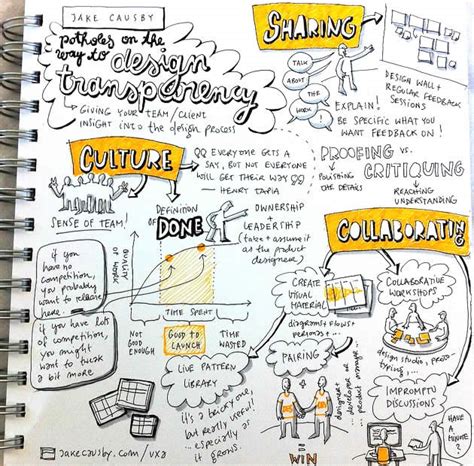 JAKE CAUSBY
potholes on the
way to design
transparency
GIVING YOUR TEAM/CLIENT
INSIGHT INTO THE DESIGN PROCESS
SHARING
TALK
ABOUT
THE
WORK!
DESIGN WALL +
REGULAR FEEDBACK
SESSIONS
EXPLAIN!
BE SPECIFIC WHAT YOU
WANT FEEDBACK ON!
CULTURE
EVERYONE GETS A
SAY, BUT NOT EVERYONE
WILL GET THEIR WAY
— HENRY TAPIA
PROOFING VS.
CRITIQUING
POLISHING
THE DETAILS
REACHING
UNDERSTANDING
SENSE OF TEAM!
DEFINITION
OF
DONE
OWNERSHIP
+
LEADERSHIP
(take + assume it
as the product
designer)
if you
have no
competition,
you probably
want to release
here.
if you have lots
of competition,
you might
want to tweak
a bit more.
QUALITY
OF WORK
TIME SPENT
NOT
GOOD
ENOUGH
GOOD TO
LAUNCH
TIME
WASTED
LIVE PATTERN
LIBRARY
it's a
but really useful!
... especially as
it grows.
COLLABORATING
CREATE
VISUAL
MATERIAL
diagrams + flows +
personas + ...
COLLABORATIVE
WORKSHOPS
design studio, proto-
typing ...
PAIRING
designer +
developer or
product manager...
= WIN
IMPROMPTU
DISCUSSIONS
HAVE
A
MINUTE?
jakecausby.com/ux8